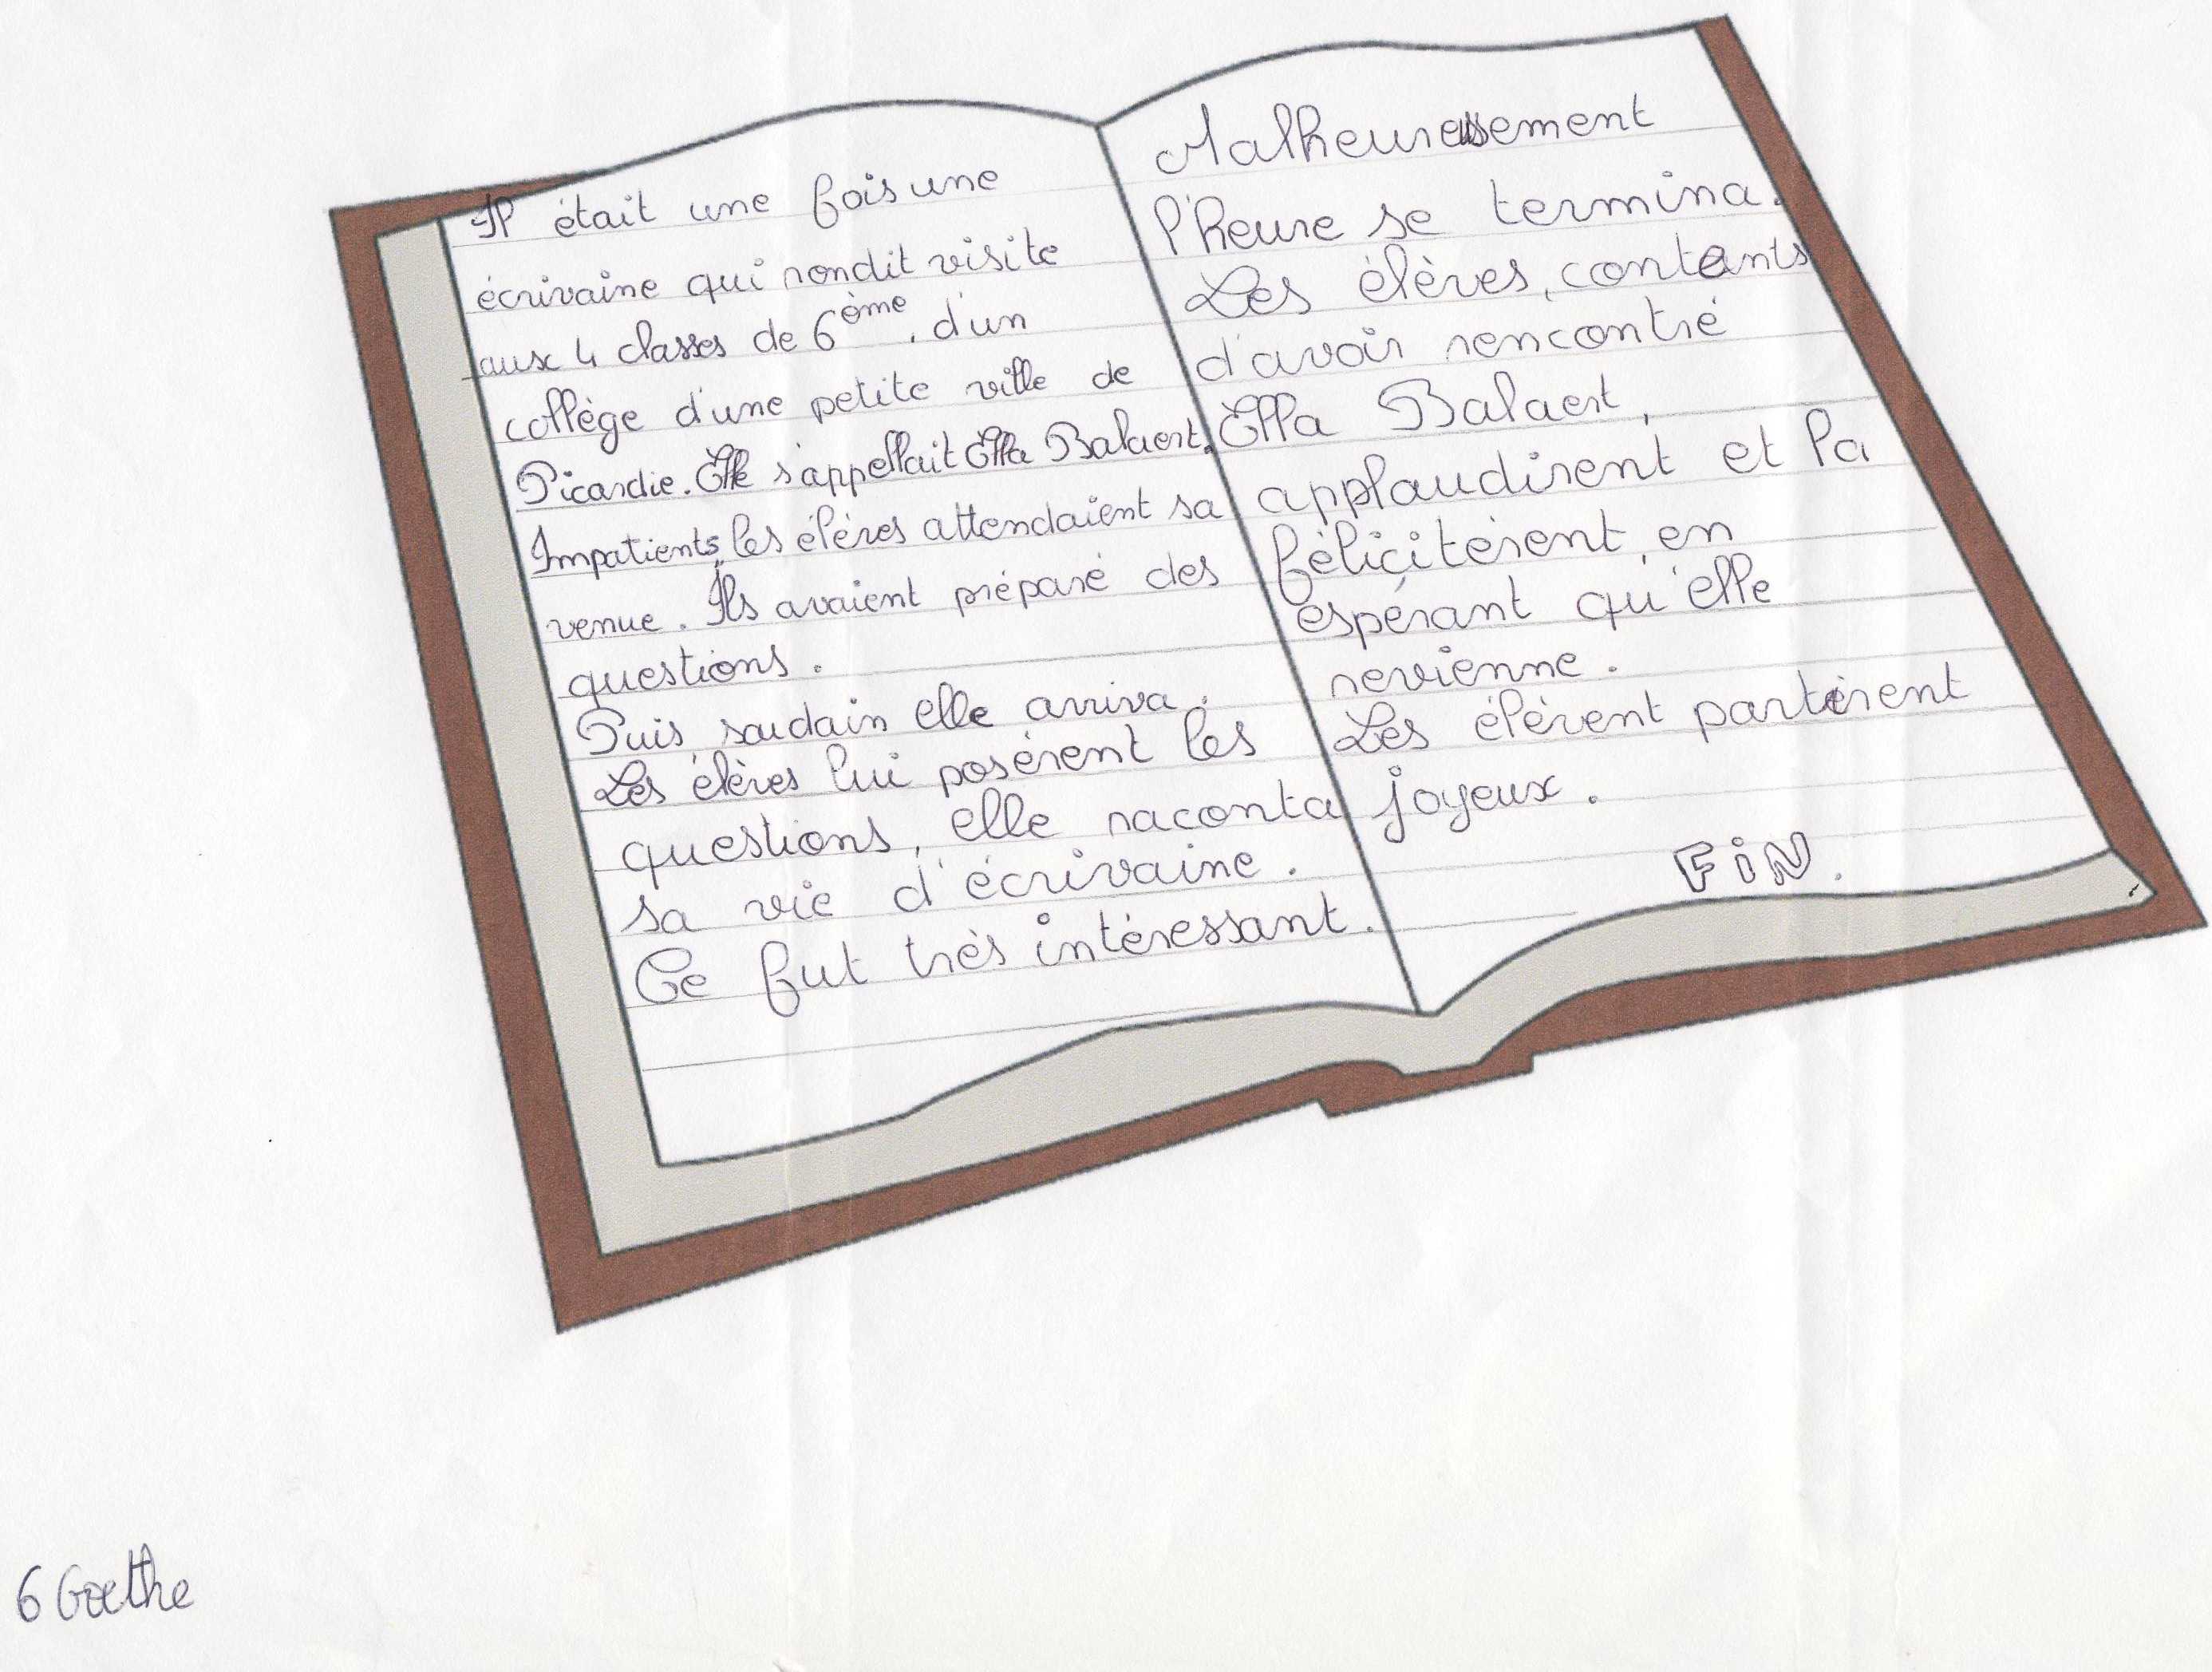 Il était une fois une
écrivaine qui rondit visite
aux 4 classes de 6ème, d'un
collège d'une petite ville de
Picardie. Elle s'appellait Ella Balaert.
Impatients, les élèves attendaient sa
venue. Ils avaient préparé des
questions.
Puis, soudain elle arriva.
Les élèves lui posèrent les
questions, elle raconta
sa vie d'écrivaine.
Ce fut très intéressant.
Malheureusement
l'heure se termina.
Les élèves, contents
d'avoir rencontré
Ella Balaert,
applaudirent et la
félicitèrent, en
espérant qu'elle
revienne.
Les élèvent partirent
joyeux.
FiN.
6 Goethe